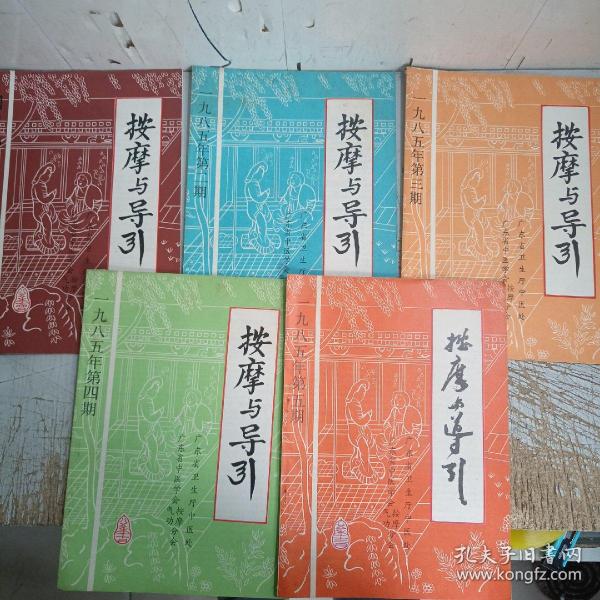 按摩与导引
一九八五年第二期
按摩与导引
一九八五年第三期
按摩与导引
广东省卫生厅中医处
广东省中医学会按摩
一九八五年第四期
按摩与导引
广东省卫生厅中医处
广东省中医学会按摩气功分会
一九八五年第五期
按摩与导引
广东省卫生厅中医处
广东省中医学会按摩气功分会
孔夫子旧书网
www.kongfz.com